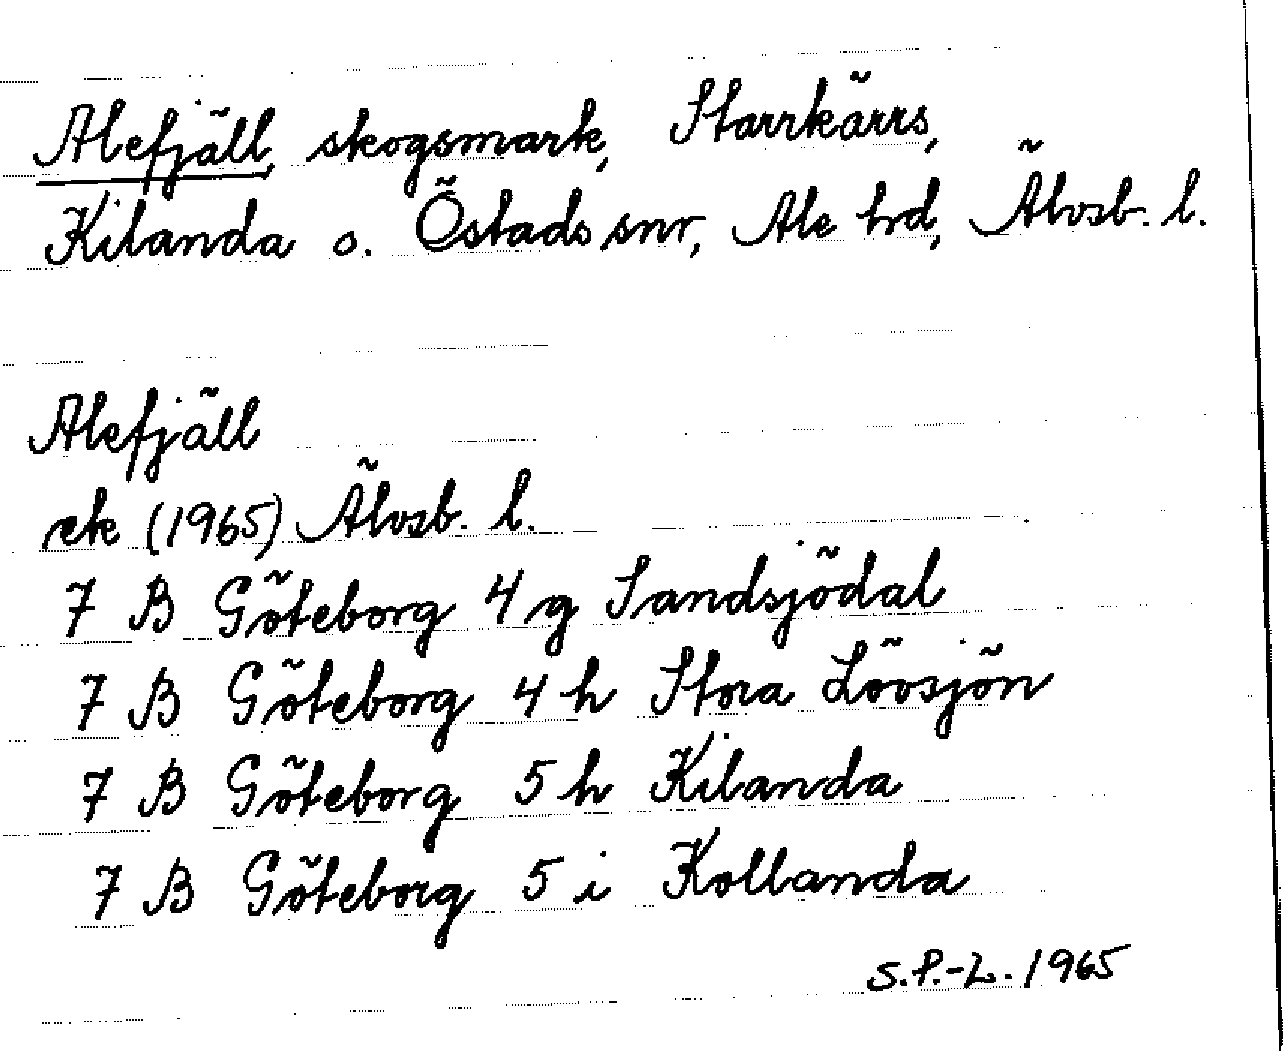 Alefjäll, skogsmark, Starrkärrs,
Kilanda o. Östads snr, Ale hrd, Älvsb. l.
Alefjäll
ek (1965) Älvsb. l.
7 B Göteborg 4 g Sandsjödal
7 B Göteborg 4 h Stora Lövsjön
7 B Göteborg 5 h Kilanda
7 B Göteborg 5 i Kollanda
S.P.-L. 1965